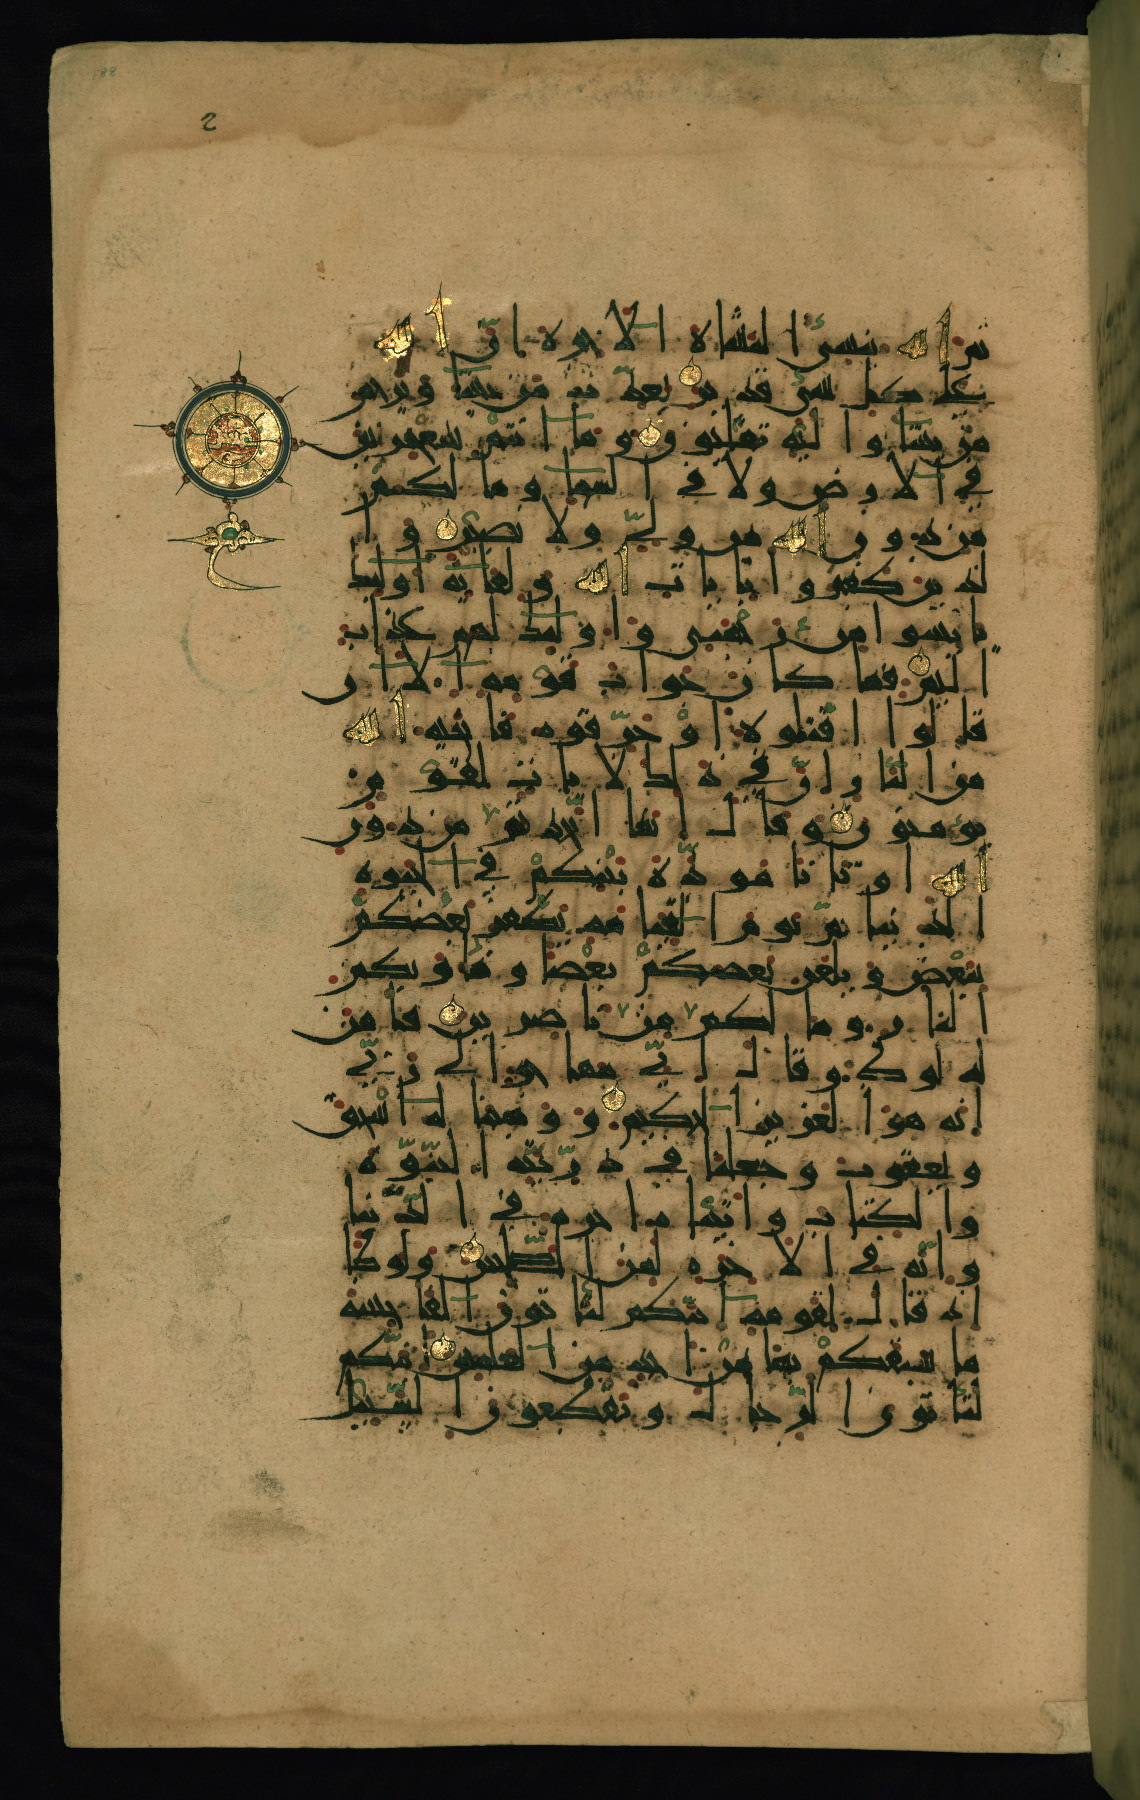 188
2
ثم الله ينشئ النشاة الاخرة ان الله
على كل شئ قدير يعذب من يشا ويرحم
من يشا واليه تقلبون وما انتم بمعجزين
في الارض ولا في السما وما لكم
من دون الله من ولي ولا نصير وا
لذين كفروا بايات الله ولقائه اولئك
يئسوا من رحمتي واولئك لهم عذاب
اليم فما كان جواب قومه الا ان
قالوا اقتلوه او حرّقوه فانجيه الله
من النار ان في ذلك لايات لقوم
يؤمنون وقال انما اتخذتم من دون
الله اوثانا مودّة بينكم في الحيوة
الدنيا ثمّ يوم القيمة يكفر بعضكم
ببعض ويلعن بعضكم بعضا وماويكم
النار وما لكم من ناصرين فامن
له لوط وقال انّي مهاجر الى ربّي
انه هو العزيز الحكيم ووهبنا له اسحق
ويعقوب وجعلنا في ذرّيّته النبوّة
والكتاب واتيناه اجره في الدّنيا
وانّه في الاخرة لمن الصّالحين ولوطا
اذ قال لقومه انّكم لتاتون الفاحشة
ما سبقكم بها من احد من العلمين ائنّكم
لتاتون الرّجال وتقطعون السّبيل